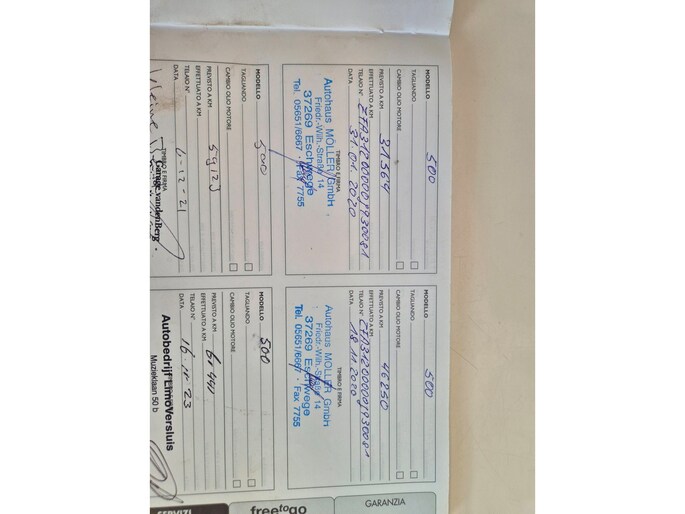 MODELLO 500
TAGLIANDO
CAMBIO OLIO MOTORE
PREVISTO A KM
EFFETTUATO A KM 31564
TELAIO N° ZFA3120000J930081
DATA 31.01.2020
TIMBRO E FIRMA
Autohaus MÖLLER GmbH
Friedr.-Wilh.-Straße 14
37269 Eschwege
Tel. 05651/6667 · Fax 7755
MODELLO 500
TAGLIANDO
CAMBIO OLIO MOTORE
PREVISTO A KM
EFFETTUATO A KM 46250
TELAIO N° ZFA3120000J930081
DATA 18.11.2020
TIMBRO E FIRMA
Autohaus MÖLLER GmbH
Friedr.-Wilh.-Straße 14
37269 Eschwege
Tel. 05651/6667 · Fax 7755
MODELLO 500
TAGLIANDO
CAMBIO OLIO MOTORE
PREVISTO A KM
EFFETTUATO A KM 59123
TELAIO N°
DATA 6-12-21
TIMBRO E FIRMA
Garage van den Berg
MODELLO 500
TAGLIANDO
CAMBIO OLIO MOTORE
PREVISTO A KM
EFFETTUATO A KM
TELAIO N°
DATA
Autobedrijf EnnoVersluis
Muzieklaan 50 b
SERVIZI
freetogo
GARANZIA